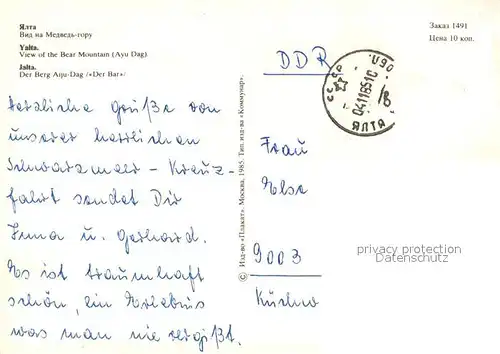 Ялта
Вид на Медведь-гору
Yalta.
View of the Bear Mountain (Ayu Dag)
Jalta.
Der Berg Aiju-Dag /«Der Bar»/
Заказ 1491
Цена 10 коп.
DDR
СССР
04118510
ЯЛТА
Herzliche Grüße von
unserer herrlichen
Schwarzmeer-Kreuz-
fahrt sendet Dir
Inna u. Gerhard.
Es ist traumhaft
schön, ein Erlebnis
was man nie vergißt.
© Изд-во «Плакат». Москва, 1985. Тип. изд-ва «Коммунар».
Frau
Else
9003
privacy protection
Datenschutz